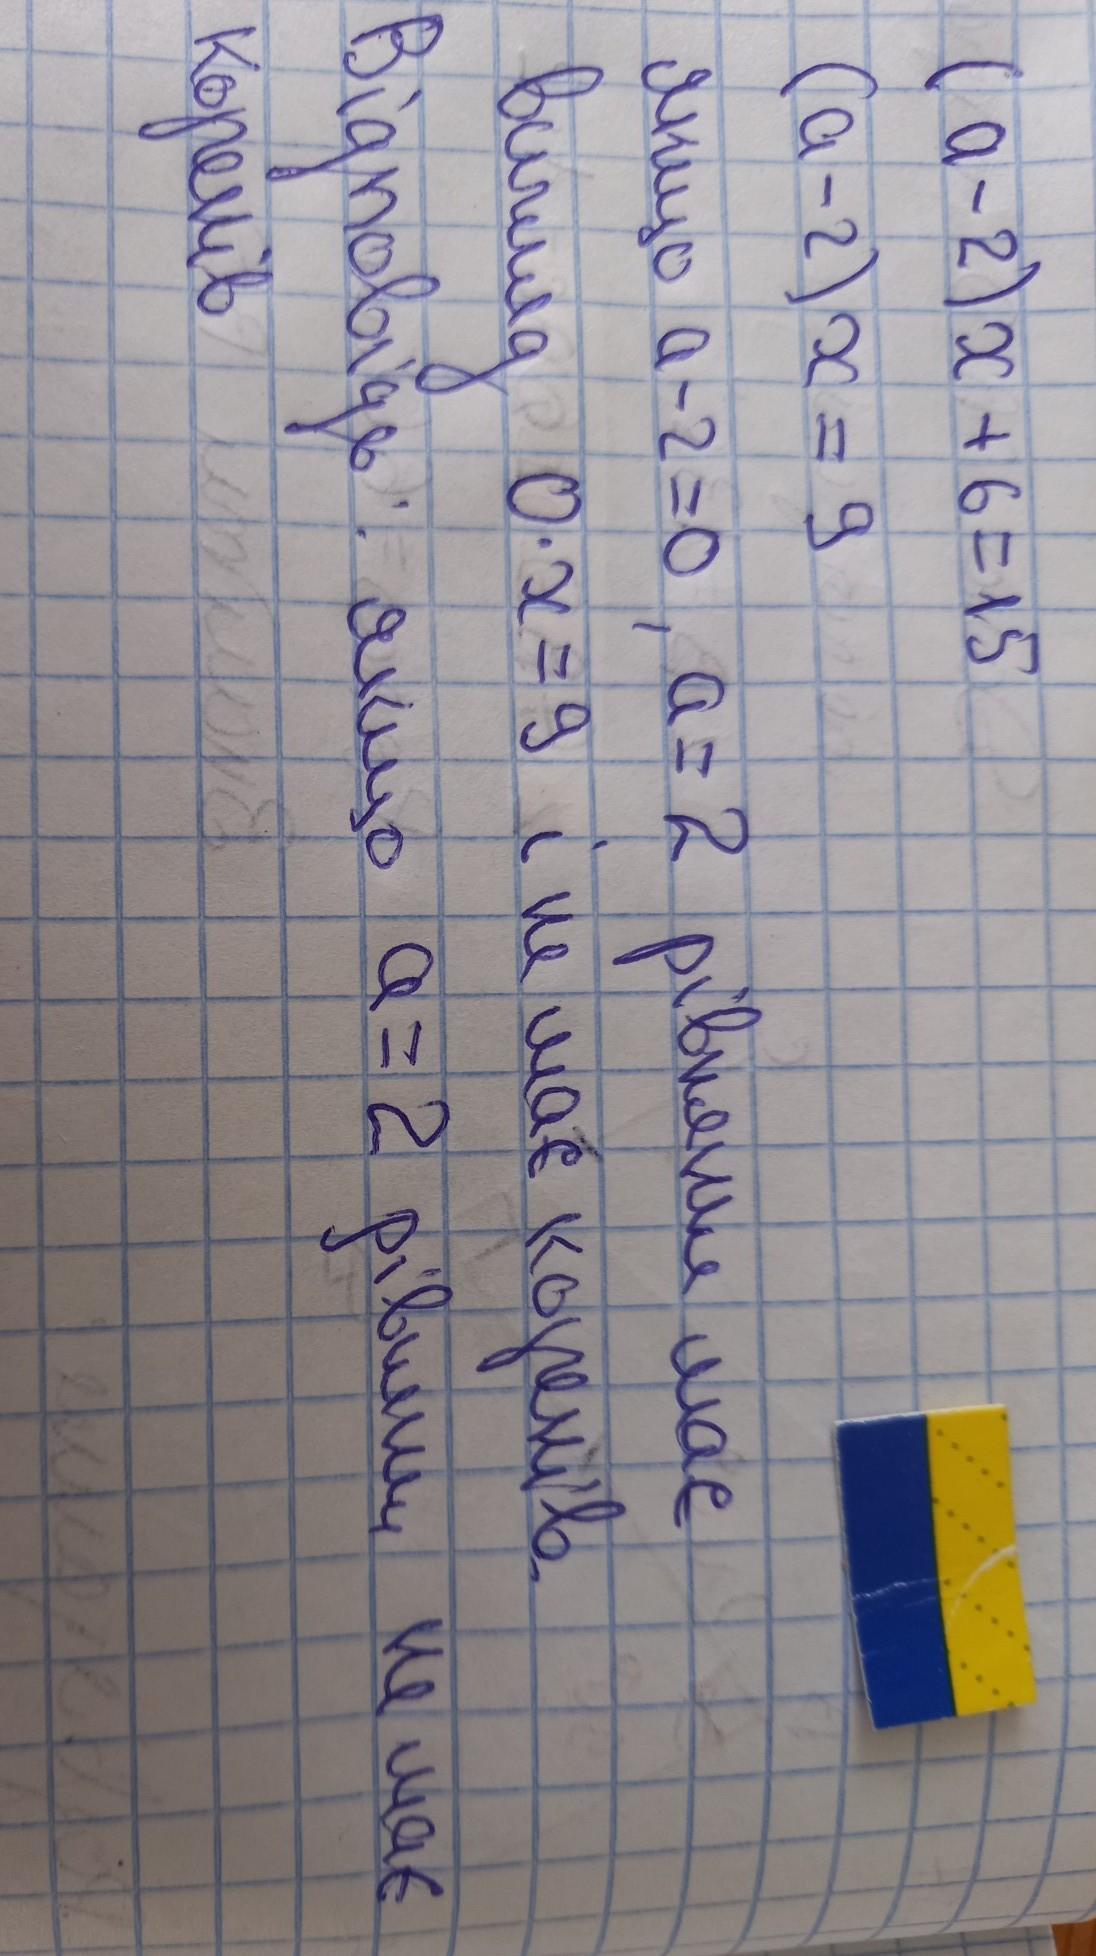 (a-2)x+6=15
(a-2)x=9
якщо a-2=0, a=2 рівняння має
вигляд 0·x=9 і не має коренів.
Відповідь: якщо a=2 рівнян не має
коренів